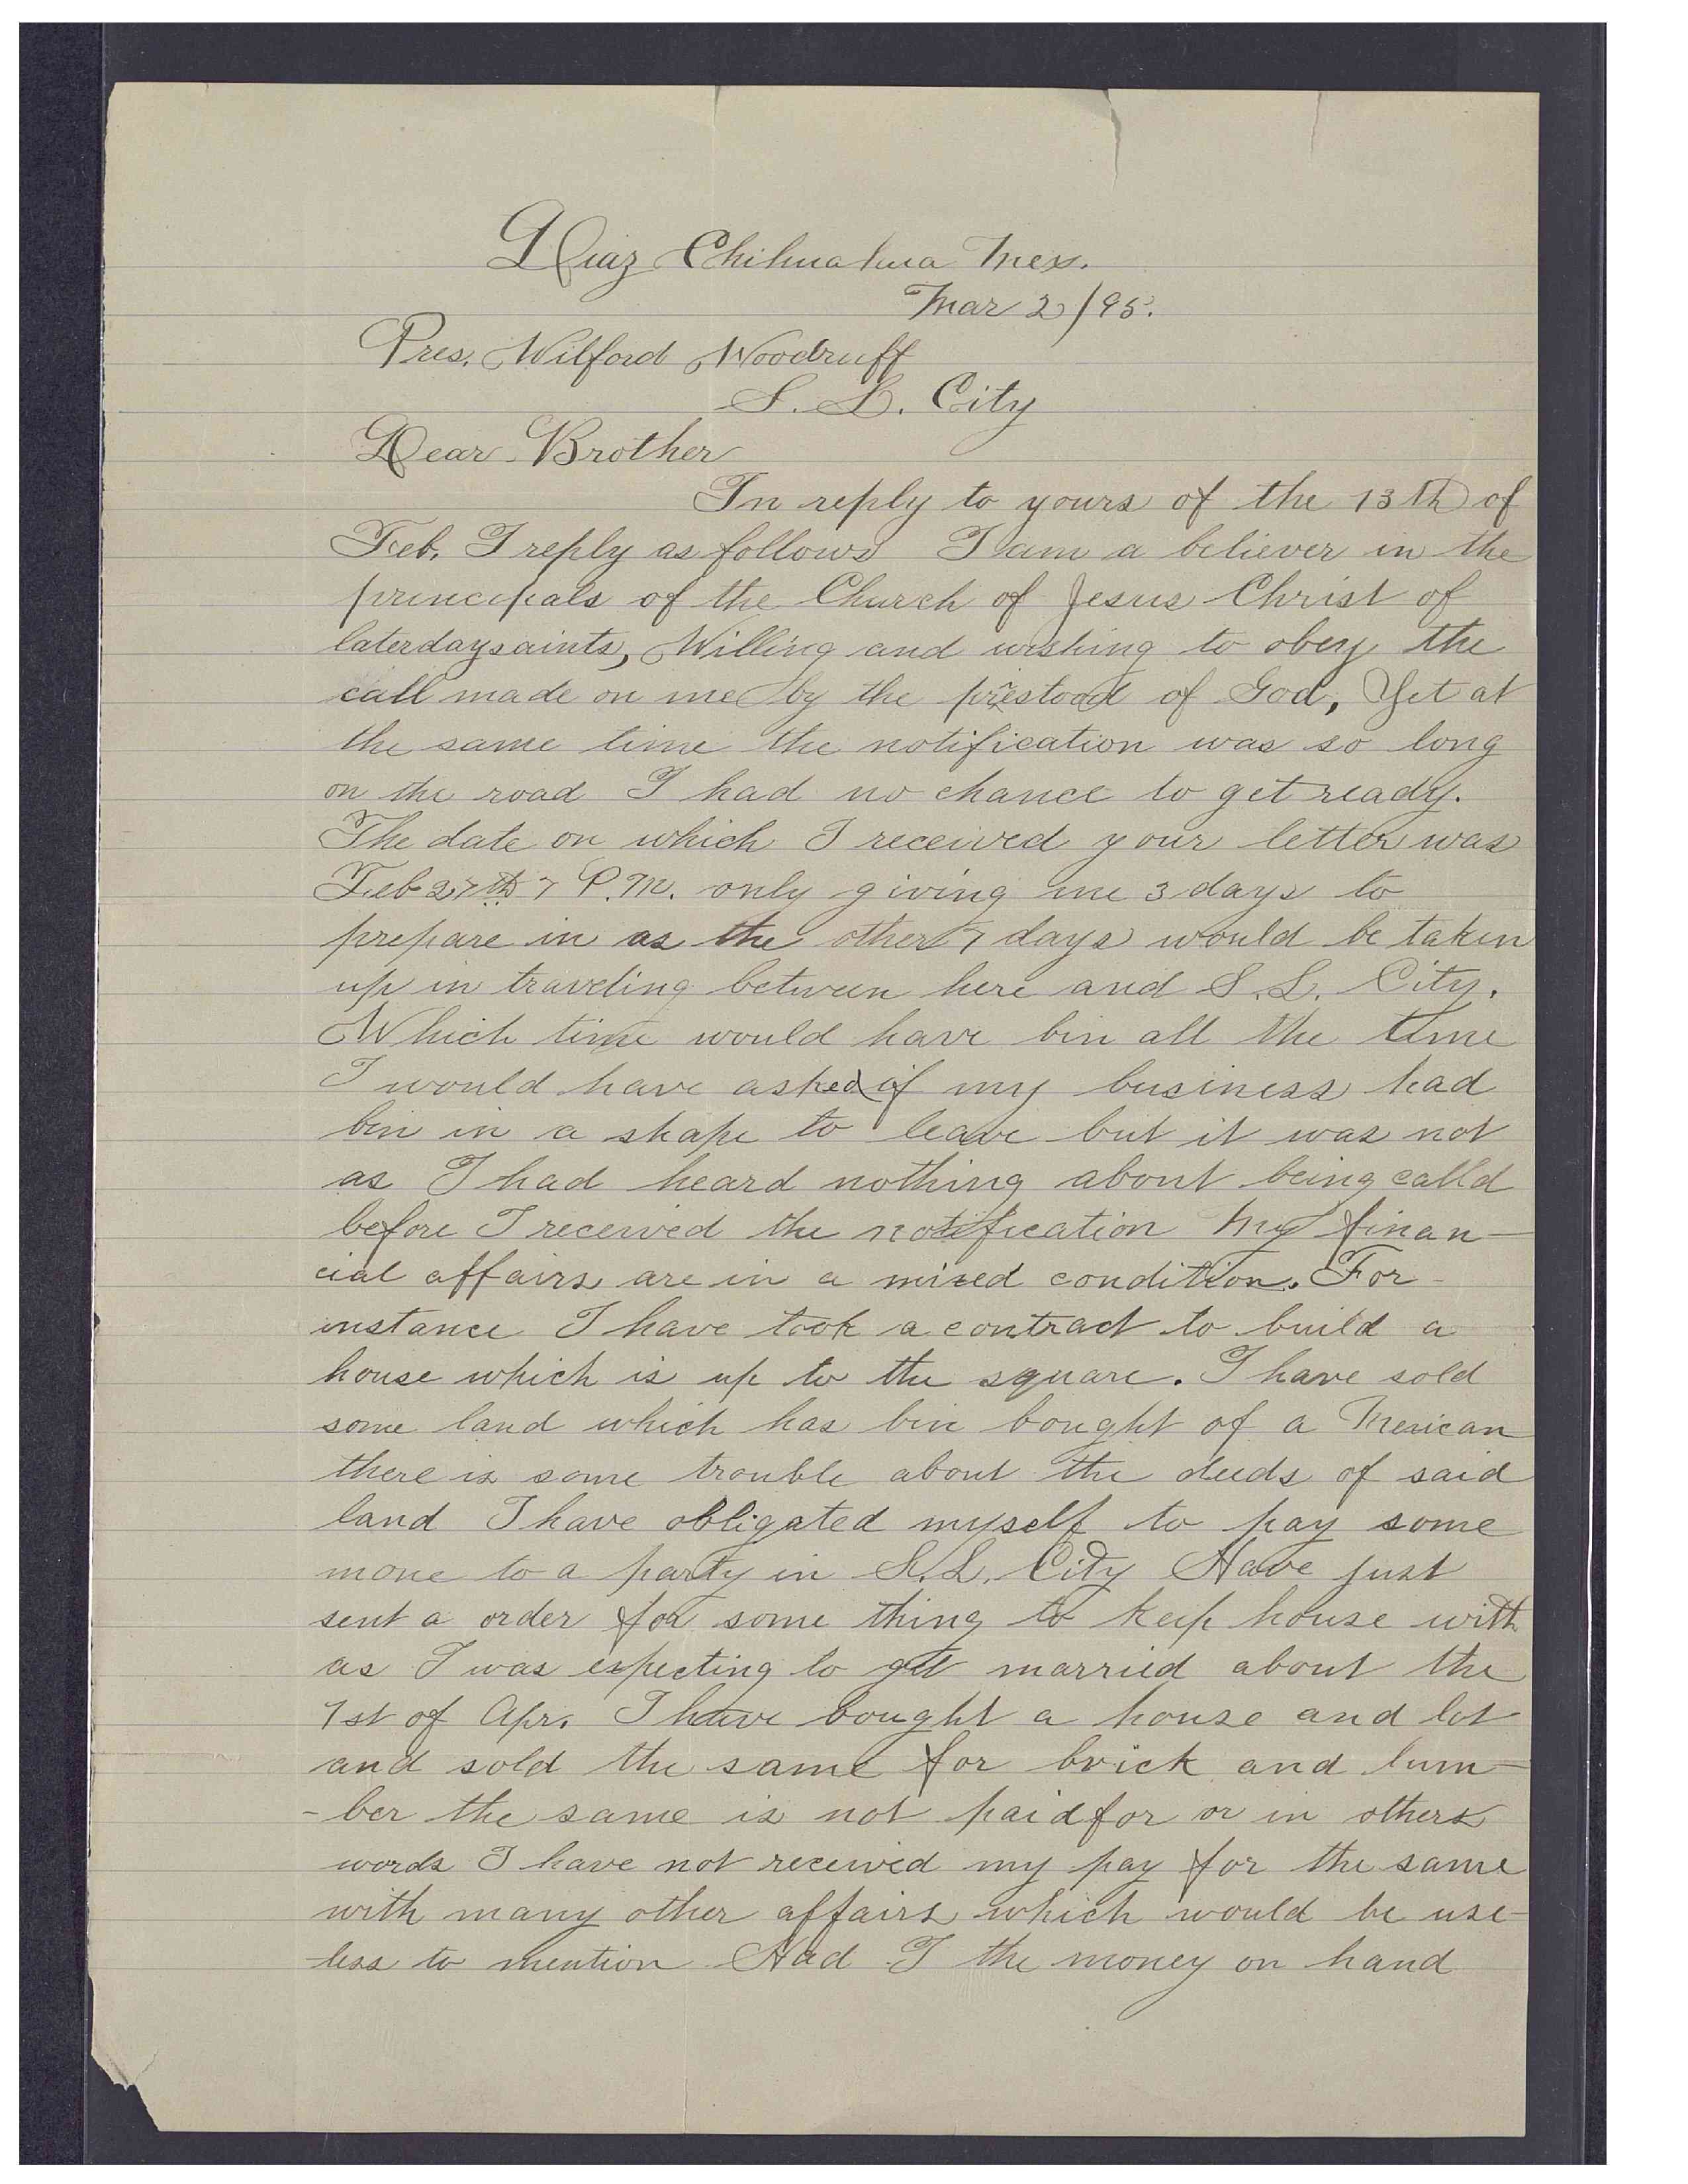 Diaz Chihuahua Mex.
Mar 2/95.
Pres. Wilford Woodruff
S. L. City
Dear Brother
In reply to yours of the 13th of
Feb. I reply as follows I am a believer in the
principals of the Church of Jesus Christ of
laterdaysaints, Willing and wishing to obey the
call made on me by the priestood of God, Yet at
the same time the notification was so long
on the road I had no chance to get ready.
The date on which I received your letter was
Feb 27th 7 P.M. only giving me 3 days to
prepare in as the other 7 days would be taken
up in traveling between here and S. L. City.
Which time would have bin all the time
I would have asked if my business had
bin in a shape to leave but it was not
as I had heard nothing about being calld
before I received the notification My finan-
cial affairs are in a mixed condition. For-
instance I have took a contract to build a
house which is up to the square. I have sold
some land which has bin bought of a Mexican
there is some trouble about the deeds of said
land I have obligated myself to pay some
mone to a party in S. L. City Have just
sent a order for some thing to keep house with
as I was expecting to get married about the
1st of Apr. I have bought a house and lot
and sold the same for brick and lum-
-ber the same is not paid for or in others
words I have not received my pay for the same
with many other affairs which would be use-
less to mention Had I the money on hand